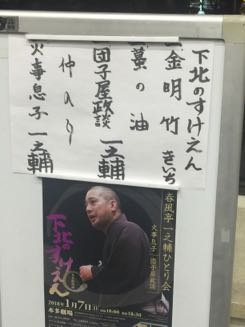 下北のすけえん
一金明竹 きいち
蟇の油
団子屋政談 一之輔
仲入り
火事息子 一之輔
春風亭一之輔ひとり会
火事息子 団子屋政談
下北のすけえん
2018年1月7日
本多劇場